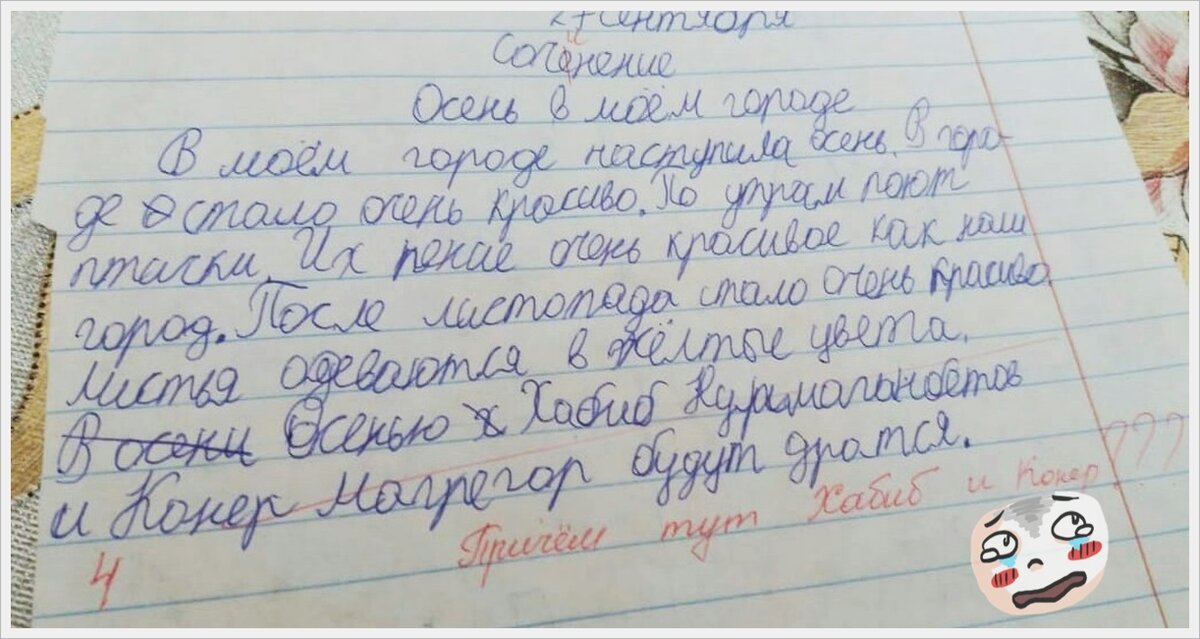 27 сентября
Соченение
и
Осень в моём городе
В моём городе наступила осень. В горо-
де стало очень красиво. По утрам поют
птички. Их пение очень красивое как наш
город. После листопада стало очень красиво.
Листья одеваются в жёлтые цвета.
В осени Осенью х Хабиб Нурмагамедов
и Конер Магрегор будут дратся.
4 Причём тут Хабиб и Конер???